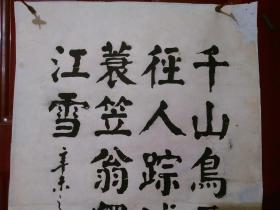 千山鳥
徑人踪滅
蓑笠翁獨
江雪
辛未之